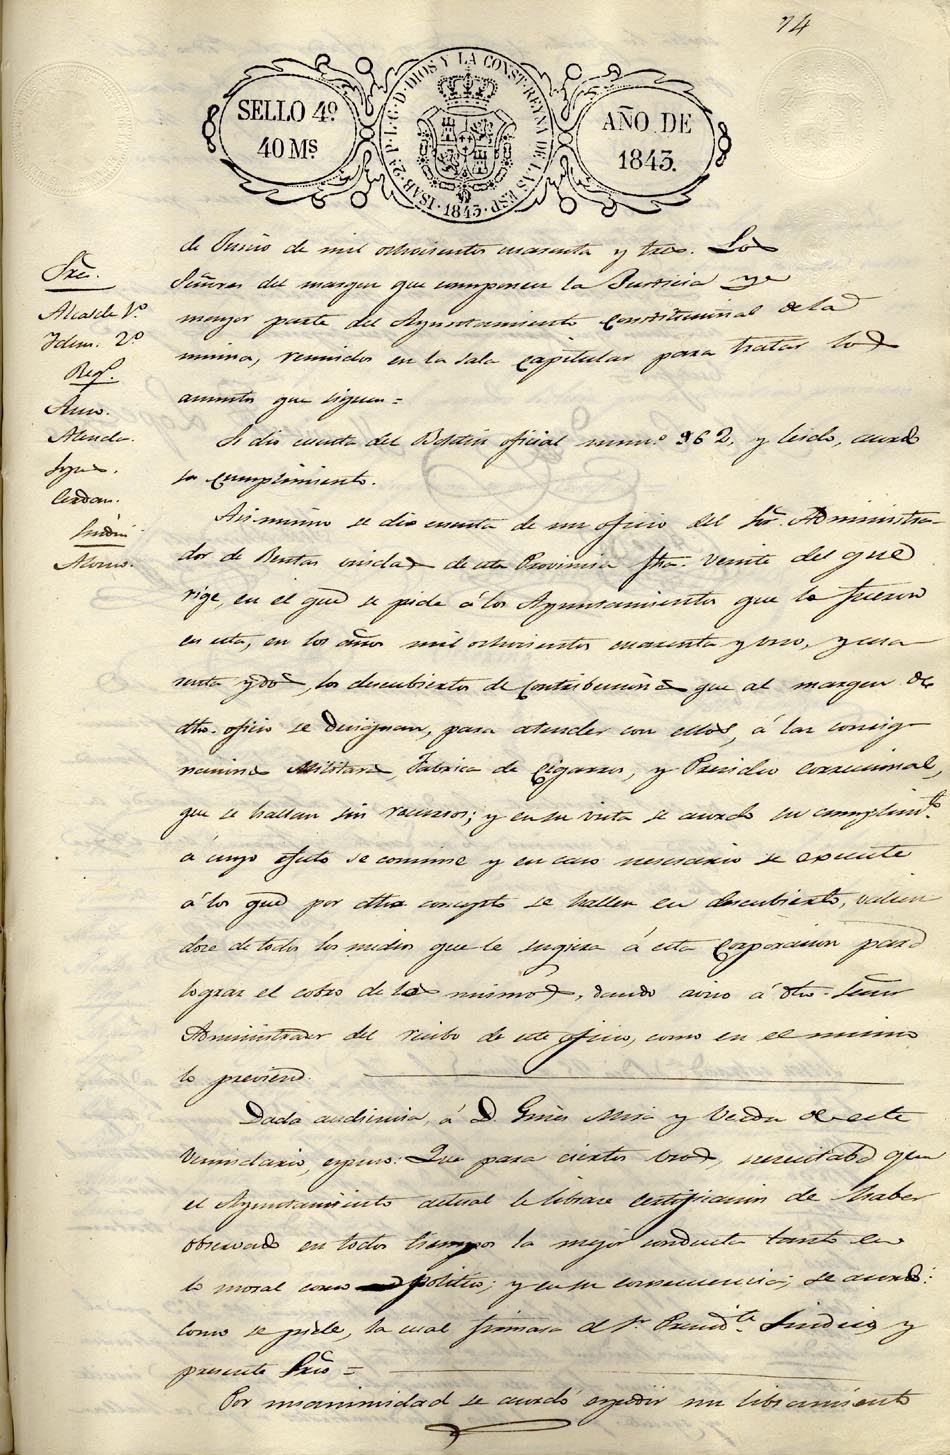 74
SELLO 4º
40 Mˢ
ISAB·2ª P·L·G·D·DIOS Y LA CONST·REYNA DE LAS ESP·
1843
AÑO DE
1843.
Sres.
Alcalde 1º.
Idem. 2º
Regs.
Amo.
Cerdan.
Sindico
Alonso.
de Junio de mil ochocientos cuarenta y tres. Los
Señores del margen que componen la Justicia y
mayor parte del Ayuntamiento Constitucional de la
misma, reunidos en la sala capitular para tratar los
asuntos que siguen=
Se dio cuenta del Boletin oficial numº 962, y leido, acordó
su cumplimiento.
Asi mismo se dio cuenta de un oficio del Sor. Administra-
dor de Rentas unidas de esta Provincia fha. veinte del que
rige, en el que se pide á los Ayuntamientos que lo fueron
en esta, en los años mil ochocientos cuarenta y uno, y cua
renta y dos, los descubiertos de contribuciones que al margen de
dho. oficio se designan, para atender con ellos, á las consig
naciones Militares, Fabrica de Cigarros, y Presidio correccional,
que se hallan sin recursos; y en su vista se acordó su cumplimto.
á cuyo efecto se comine y en caso necesario se execute
á los que por dho concepto se hallen en descubierto, valien
dose de todos los medios que le sugiera á esta Corporacion para
lograr el cobro de los mismos, dando aviso á dho. Señor
Administrador del recibo de este oficio, como en el mismo
lo previene.
Dada audiencia, á D. Gines Mira y Verdu de este
Vecindario, espuso: Que para ciertos usos, necesitaba que
el Ayuntamiento actual le librase certificacion de haber
observado en todos tiempos la mejor conducta tanto en
lo moral como politico; y en su consecuencia, se acordó:
como se pide, la cual firmara el Sr. Presidte. Sindico y
presente Srio=
Por unanimidad se acordó expedir un libramiento